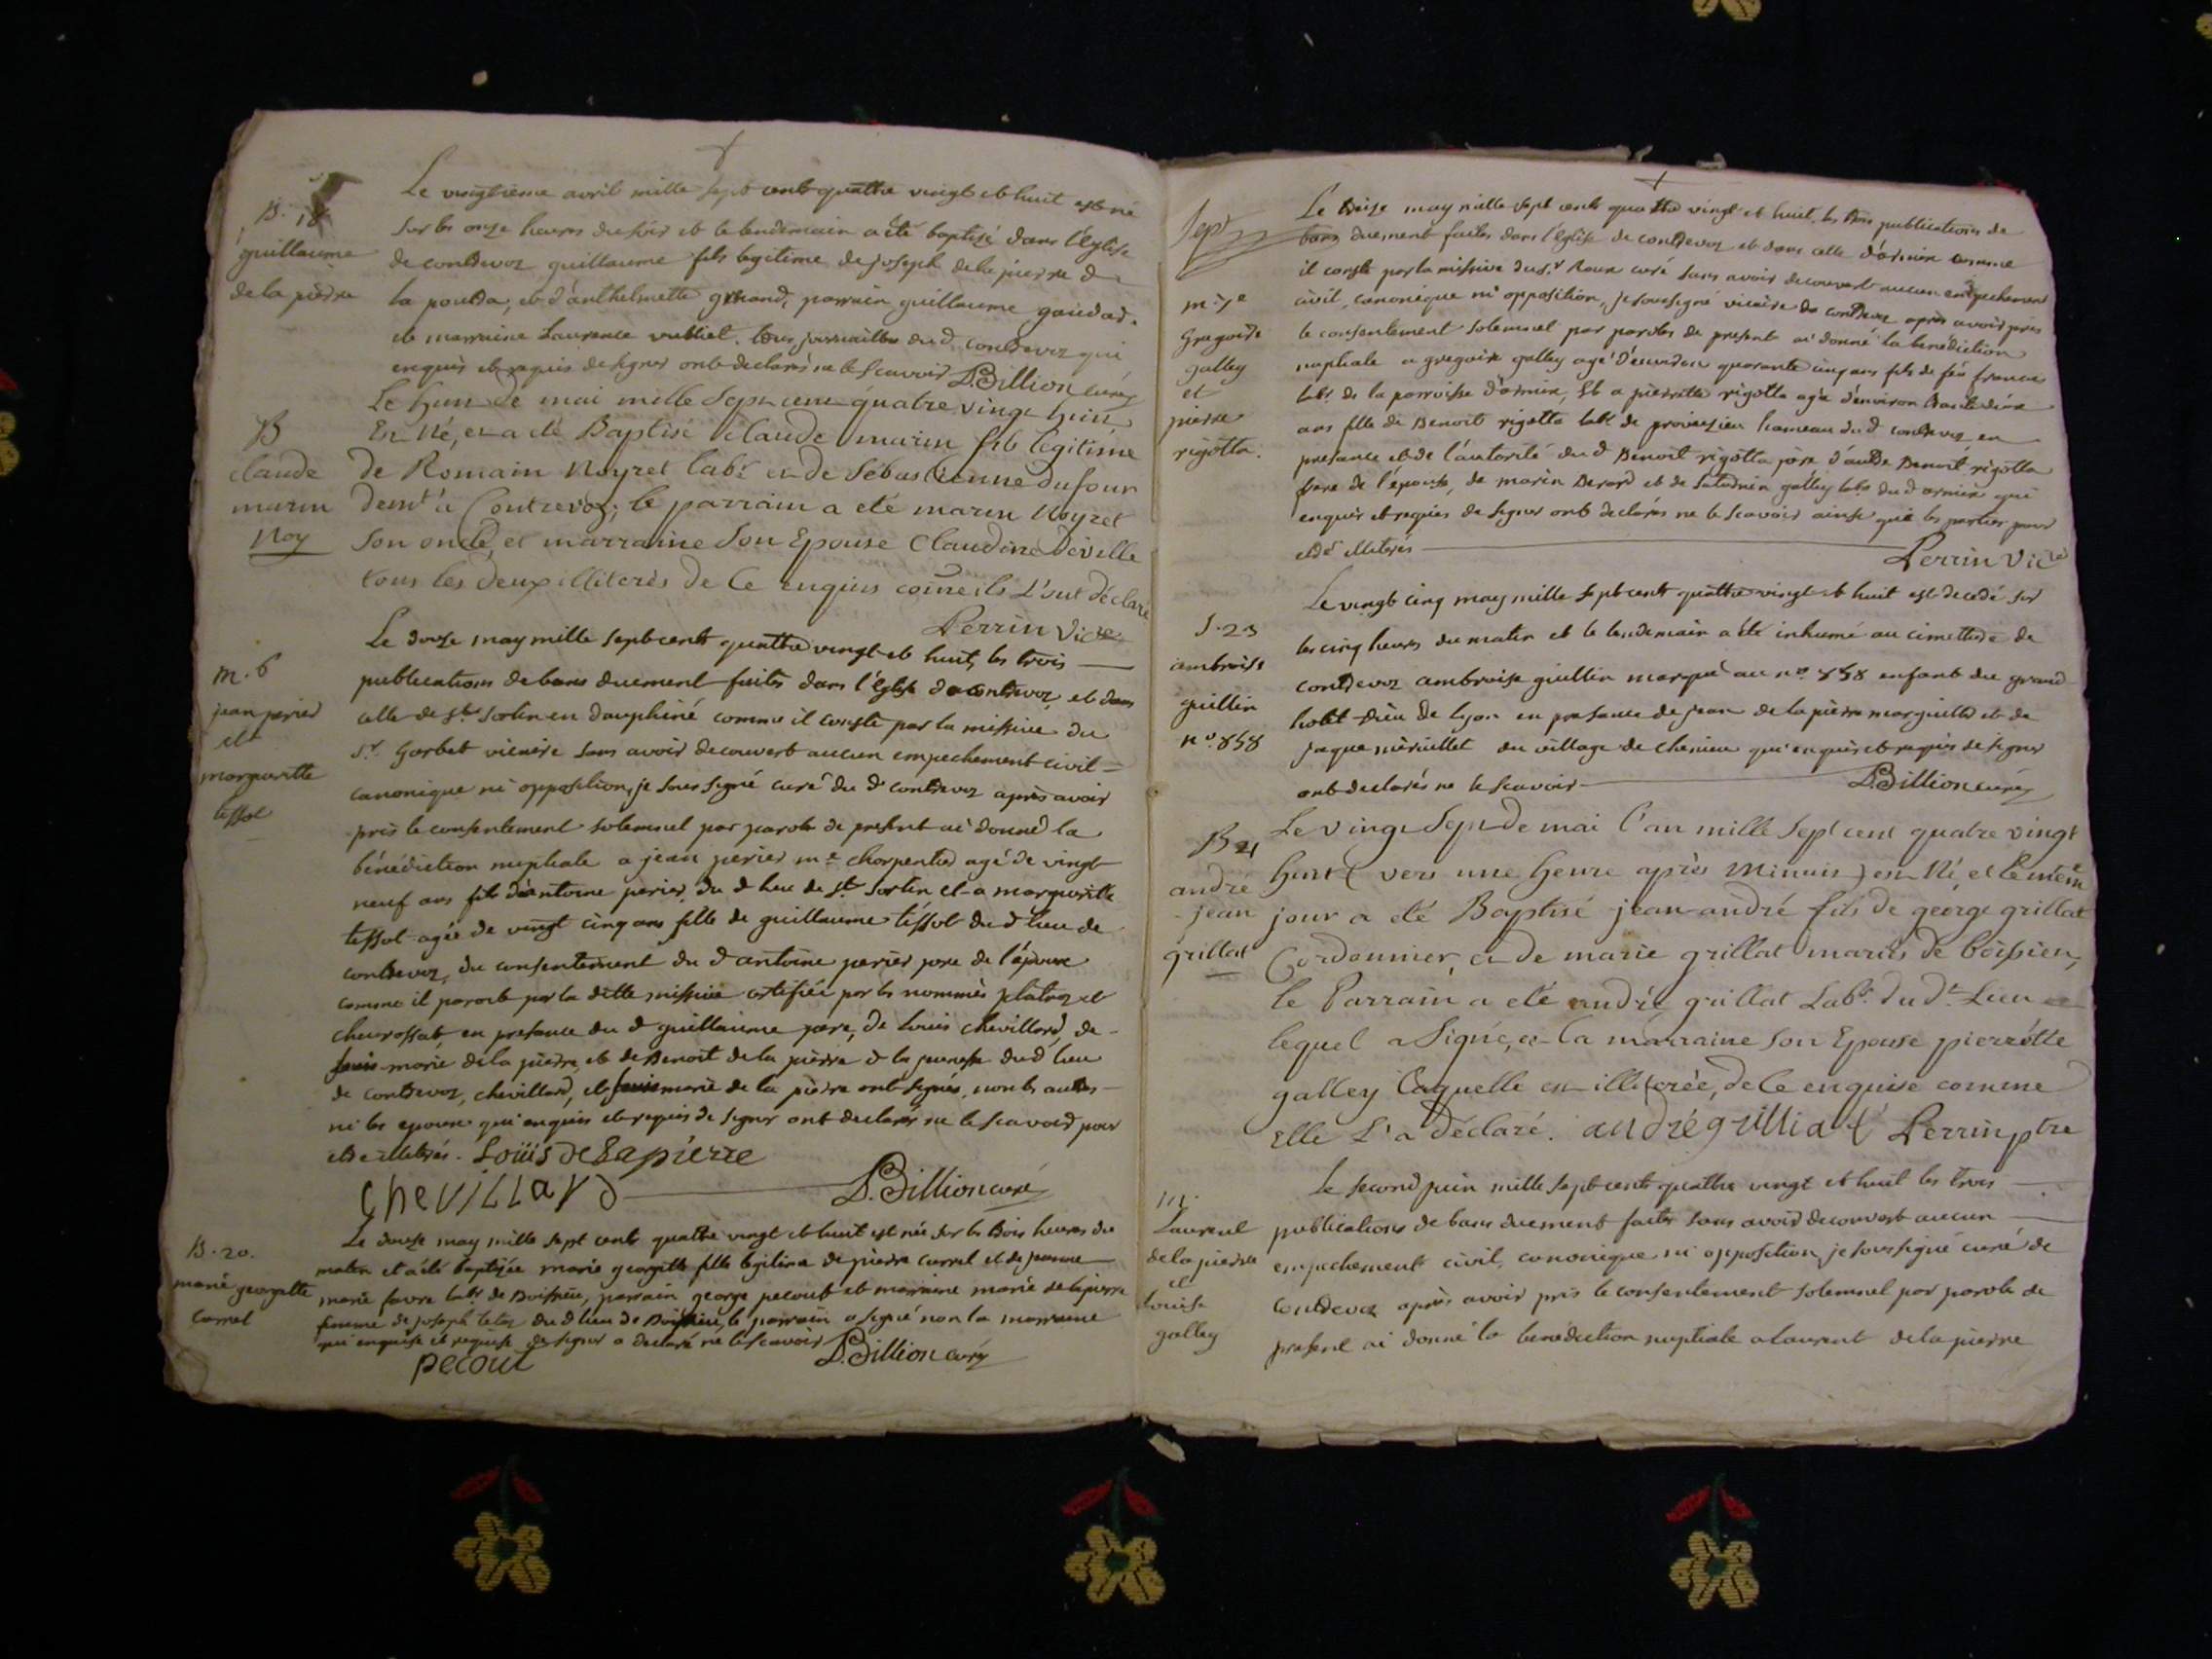 B. 18
guillaume
de la pierre
Le vingtieme avril mille sept cent quattre vingt et huit est né
sur les onze heures du soir et le lendemain a été baptisé dans l'Eglise
de contrevoz guillaume fils legitime de joseph de la pierre d
la et d'anthelmette parrain guillaume
et marraine Laurence tous du d. contrevoz qui
enquis et requis de signer ont declarés ne le scavoir D.Billion curé
B
claude
marin
Noy
Le hun de mai mille sept cent quatre vingt huit
Est Né, et a eté Baptisé Claude marin fils legitime
de Romain Noyret labr et de Sébastienne dufour
demt à Contrevoz; le parrain a eté marin Noyret
Son oncle, et marraine Son Epouse Claudine Déville
tous les deux illiterés de ce enquis come ils L'ont déclaré
Perrin Vice
m. 6
jean perier
et
marguerite
tissot
Le douze may mille sept cents quattre vingt et huit, les trois
publications de bans duement faites dans l'Eglise de contrevoz et dans
celle de st Sorlin en dauphiné comme il conste par la missive du
sr. Gorbet vicaire sans avoir decouvert aucun empechement civil
canonique ni opposition, je sous signé curé du d contrevoz après avoir
pris le consentement solemnel par parole de present ai donné la
bénédiction nuptiale a jean perier me charpentier agé de vingt
neuf ans fils d'antoine perier du d lieu de st Sorlin et a marguerite
tissot agée de vingt cinq ans fille de guillaume tissot du d lieu de
contrevoz, du consentement du d antoine perier pere de l'époux
comme il paroit par la ditte missive certifiée par les nommés et
en presence du d guillaume pere, de Louis chevillard, de
Louis marie de la pierre et de Benoit de la pierre d la jeunesse du d lieu
de contrevoz, chevillard, et Louis marie de la pierre ont signés, non les autres
ni les epoux qui enquis et requis de signer ont declarés ne le scavoir pour
etre illiterés. Loüis DeLapierre
CheviLLard D.Billion curé
B. 20.
marie georgette
carrel
Le douze may mille sept cents quattre vingt et huit est née sur les trois heures du
matin et a été baptisée marie georgette fille legitime de pierre carrel et de jeanne
marie favre labr de Boissieu, parrain george pecout et marraine marie de la pierre
femme de joseph du d lieu de Boissieu, le parrain a signé non la marraine
qui enquise et requise de signer a declaré ne le scavoir
pecout D.Billion curé
Sept
m. 7e
Gregoire
galley
et
pierre
rigotta.
Le treize may mille sept cents quattre vingt et huit, les trois publications de
bans duement faites dans l'Eglise de contrevoz et dans celle d'ormier comme
il conste par la missive du sr Roux curé sans avoir decouvert aucun empechement
civil, canonique ni opposition, je soussigné vicaire de contrevoz après avoir pris
le consentement solemnel par paroles de present ai donné la benediction
nuptiale a gregoire galley agé d'environ quarante cinq ans fils de feu francois
labr. de la parroisse d'ormier, Et a pierrette rigotta agée d'environ trente deux
ans fille de Benoit rigotta labr de hameau du d contrevoz en
presence et de l'autorité du d Benoit rigotta père d'autre Benoit rigotta
frere de l'épouse, de marin Berard et de galley labr du d ormier qui
enquis et requis de signer ont declarés ne le scavoir ainsi que les parties pour
etre illiterés Perrin Vice
S. 23
ambroise
guillin
no. 858
Le vingt cinq may mille sept cents quattre vingt et huit est decedé sur
les cinq heures du matin et le lendemain a été inhumé au cimettiere de
contrevoz ambroise guillin marqué au no. 858 enfant du grand
hotel dieu de lyon en presence de jean de la pierre marguillier et de
jaque du village de chenieu qui enquis et requis de signer
ont declarés ne le scavoir D.Billion curé
B 21
andré
jean
grillat
Le vingt Sept de mai l'an mille Sept cent quatre vingt
huit (vers une heure après Minuit) est Né, et le même
jour a eté Baptisé jean-andré fils de george grillat
Cordonnier, et de marie grillat mariés de boissieu,
le Parrain a eté andré grillat Labr. du dt Lieu
lequel a Signé, et la marraine Son Epouse pierrétte
galley laquelle est illiterée, de ce enquise comme
Elle L'a déclaré. andrégrilliat Perrin ptre
m.
Laurent
dela pierre
et
Louise
galley
Le second juin mille sept cents quattre vingt et huit les trois
publications de bans duement faites sans avoir decouvert aucun
empechement civil, canonique ni opposition, je soussigné curé de
contrevoz après avoir pris le consentement solemnel par parole de
present ai donné la benediction nuptiale a Laurent dela pierre